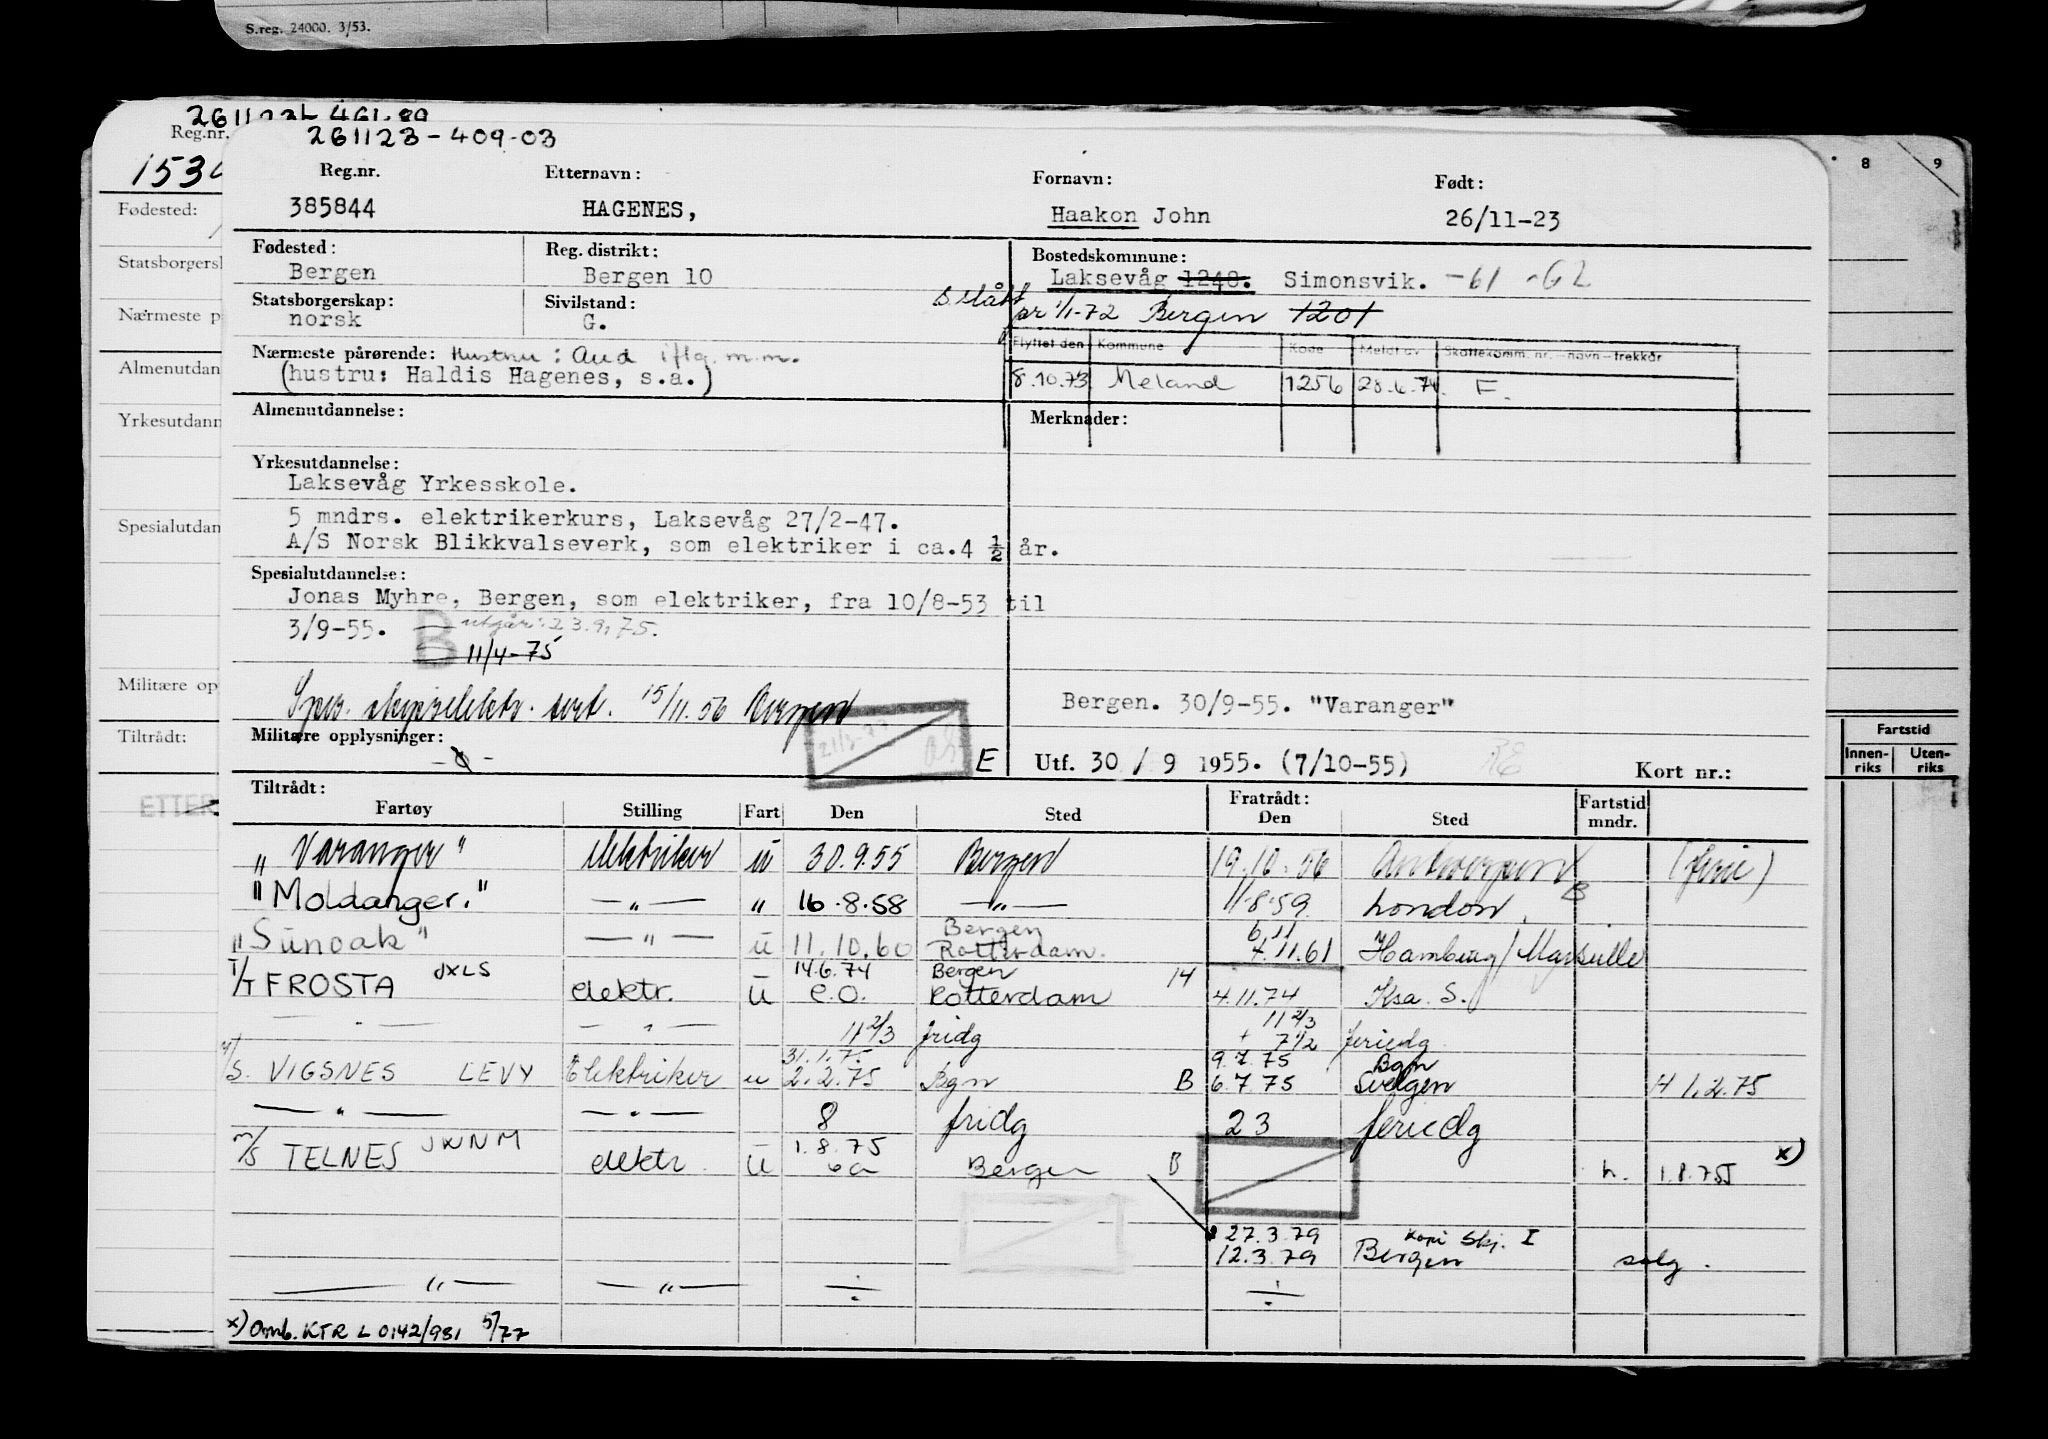 S.reg. 24000. 3/53.
Reg.nr.
Fødested:
Tiltrådt:
8 9
Fartstid
Innen-riks Uten-riks
261123-409-03
Reg.nr. Etternavn: Fornavn: Født:
385844 HAGENES, Haakon John 26/11-23
Fødested: Reg. distrikt: Bostedskommune:
Bergen Bergen 10 Laksevåg 1248. Simonsvik. -61 -62
Statsborgerskap: Sivilstand:
norsk G. pr 1/1-72 Bergen 1201
Flyttet den Kommune Kode Meldt av Skattekomm. nr. – navn – trekkår
Nærmeste pårørende: Hustru: Aud iflg. m.m.
(hustru: Haldis Hagenes, s.a.) 8.10.73 Meland 1256 28.6.74. F.
Almenutdannelse: Merknader:
Yrkesutdannelse:
Laksevåg Yrkesskole.
5 mndrs. elektrikerkurs, Laksevåg 27/2-47.
A/S Norsk Blikkvalseverk, som elektriker i ca.4 ½ år.
Spesialutdannelse:
Jonas Myhre, Bergen, som elektriker, fra 10/8-53 til
3/9-55. B utgår: 23.9.75.
11/4-75
Spes. skipselektr. sert. 15/11.56 Bergen Bergen. 30/9-55. "Varanger"
Militære opplysninger:
-o- E Utf. 30/9 1955. (7/10-55) Kort nr.:
Tiltrådt: Fratrådt: Fartstid mndr.
Fartøy Stilling Fart Den Sted Den Sted
"Varanger" elektriker u 30.9.55 Bergen 19.10.56 Antwerpen (ferie)
"Moldanger." — " — " 16.8.58 — " — 11.8.59 London. B
Bergen 6.11
"Sunoak" — " — u 11.10.60 Rotterdam. 4.11.61 Hamburg/Marseille
14.6.74 Bergen
T/T FROSTA JXLS elektr. u e.o. Rotterdam 14 4.11.74 Ksa. S.
— " — — " — 11 2/3 fridg 11 2/3 + 7 1/2 feriedg.
31.1.75 9.7.75 Bgn
M/S. VIGSNES LEVY Elektriker u 2.2.75 Bgn B 6.7.75 Svelgen H 1.2.75
— " — — " — 8 fridg 23 feriedg
1.8.75
M/S TELNES JWNM elektr. u Bergen B h. 1.8.75 x)
27.3.79 Kopi Skj. I
12.3.79 Bergen salg.
— " — — " — ÷ ÷
x) Omb. KTR L 0142/931 5/77